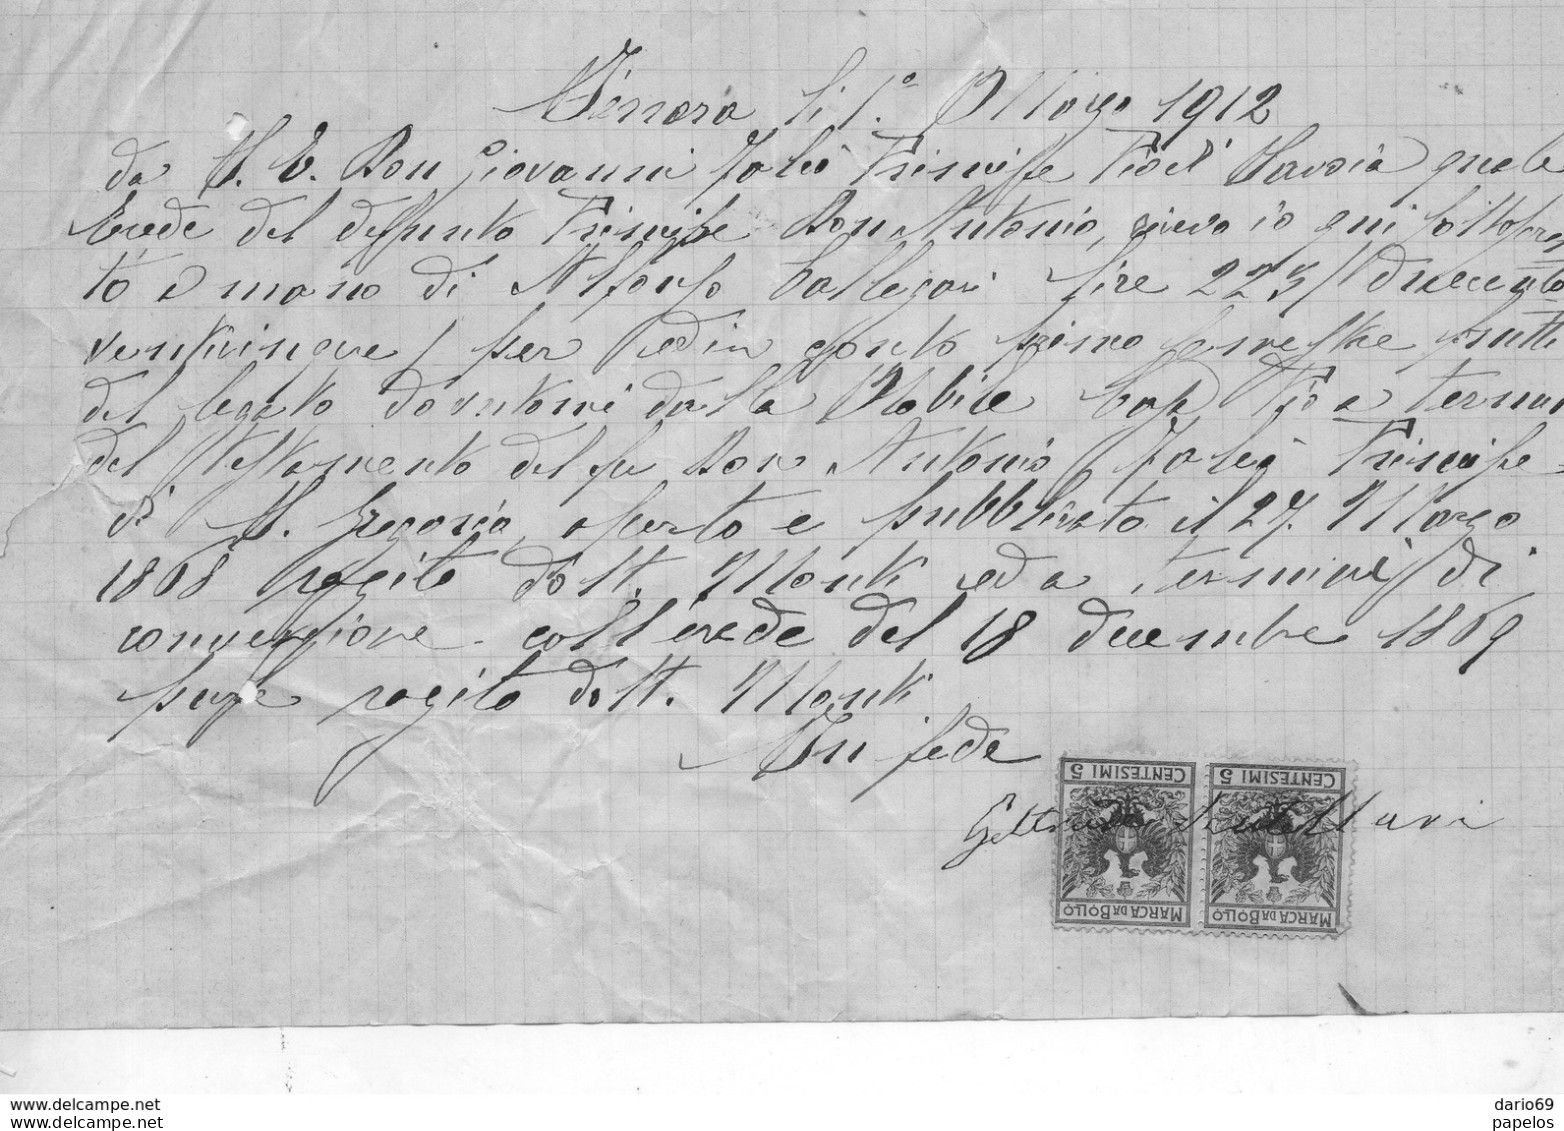 Ferrara li 1.° Marzo 1912
da S. E. Don Giovanni Falcò Principe Pio di Savoia quale
Erede del deffunto Principe Don Antonio, ricevo io qui sottoscri
to a mano di Alfonso Callegari lire 225 / duecento
venticinque / per ed in conto primo semestre frutti
del legato dovutomi dalla Nobile Casa Pio a termini
del Testamento del fu Don Antonio Falcò Principe
di S. Gregorio, aperto e pubblicato il 27. Marzo
1868 rogito dott. Monti ed a termini di
convenzione coll'erede del 18 decembre 1869
pure rogito dott. Monti
In fede
CENTESIMI 5 CENTESIMI 5
MARCA DA BOLLO MARCA DA BOLLO
dario69
papelos